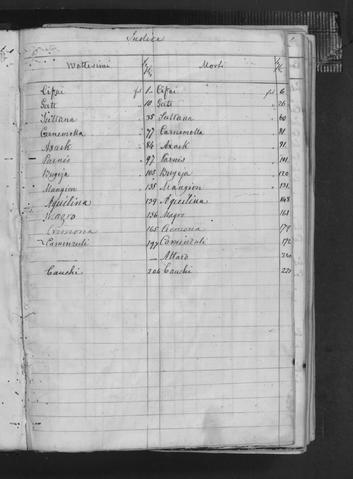 Indice
Battesimi Morti
Cifai fol 1 Cifai fol 6
Gatt " 10 Gatt " 26
Sultana " 35 Sultana " 60
Carnemolla " 77 Carnemolla " 81
Axack " 84 Axack " 91
Parnis " 97 Parnis " 101
Bugeja 105 Bugeja 120
Mangion 135 Mangion 131
Aquilina 139 Aquilina 148
Magro 156 Magro 161
Cremona 165 Cremona 170
Caminzuli 197 Caminzuli 172
— Attard
Cauchi 206 Cauchi